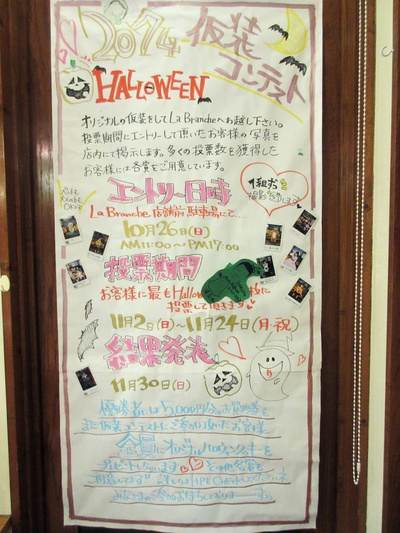 2014年
仮装
コンテスト
HALLOWEEN
オリジナルの仮装をしてLa Brancheへお越し下さい。
投票期間にエントリーして頂いたお客様の写真を
店内にて掲示します。多くの投票数を獲得した
お客様には各賞をご用意しています。
エントリー日時
1組ずつ
La Branche 店舗前 駐車場にて…
10月26日(日)
AM11:00〜PM17:00
投票期間
お客様に最もHallow
投票して頂きます
11月2日(日)〜11月24日(月・祝)
結果発表
11月30日(日)
優勝者には5,000円分のお買物券を
また仮装コンテストにご参加頂いたお客様
全員にオリジナルハロウィンクッキーを
プレゼントしちゃいます
その他各賞を